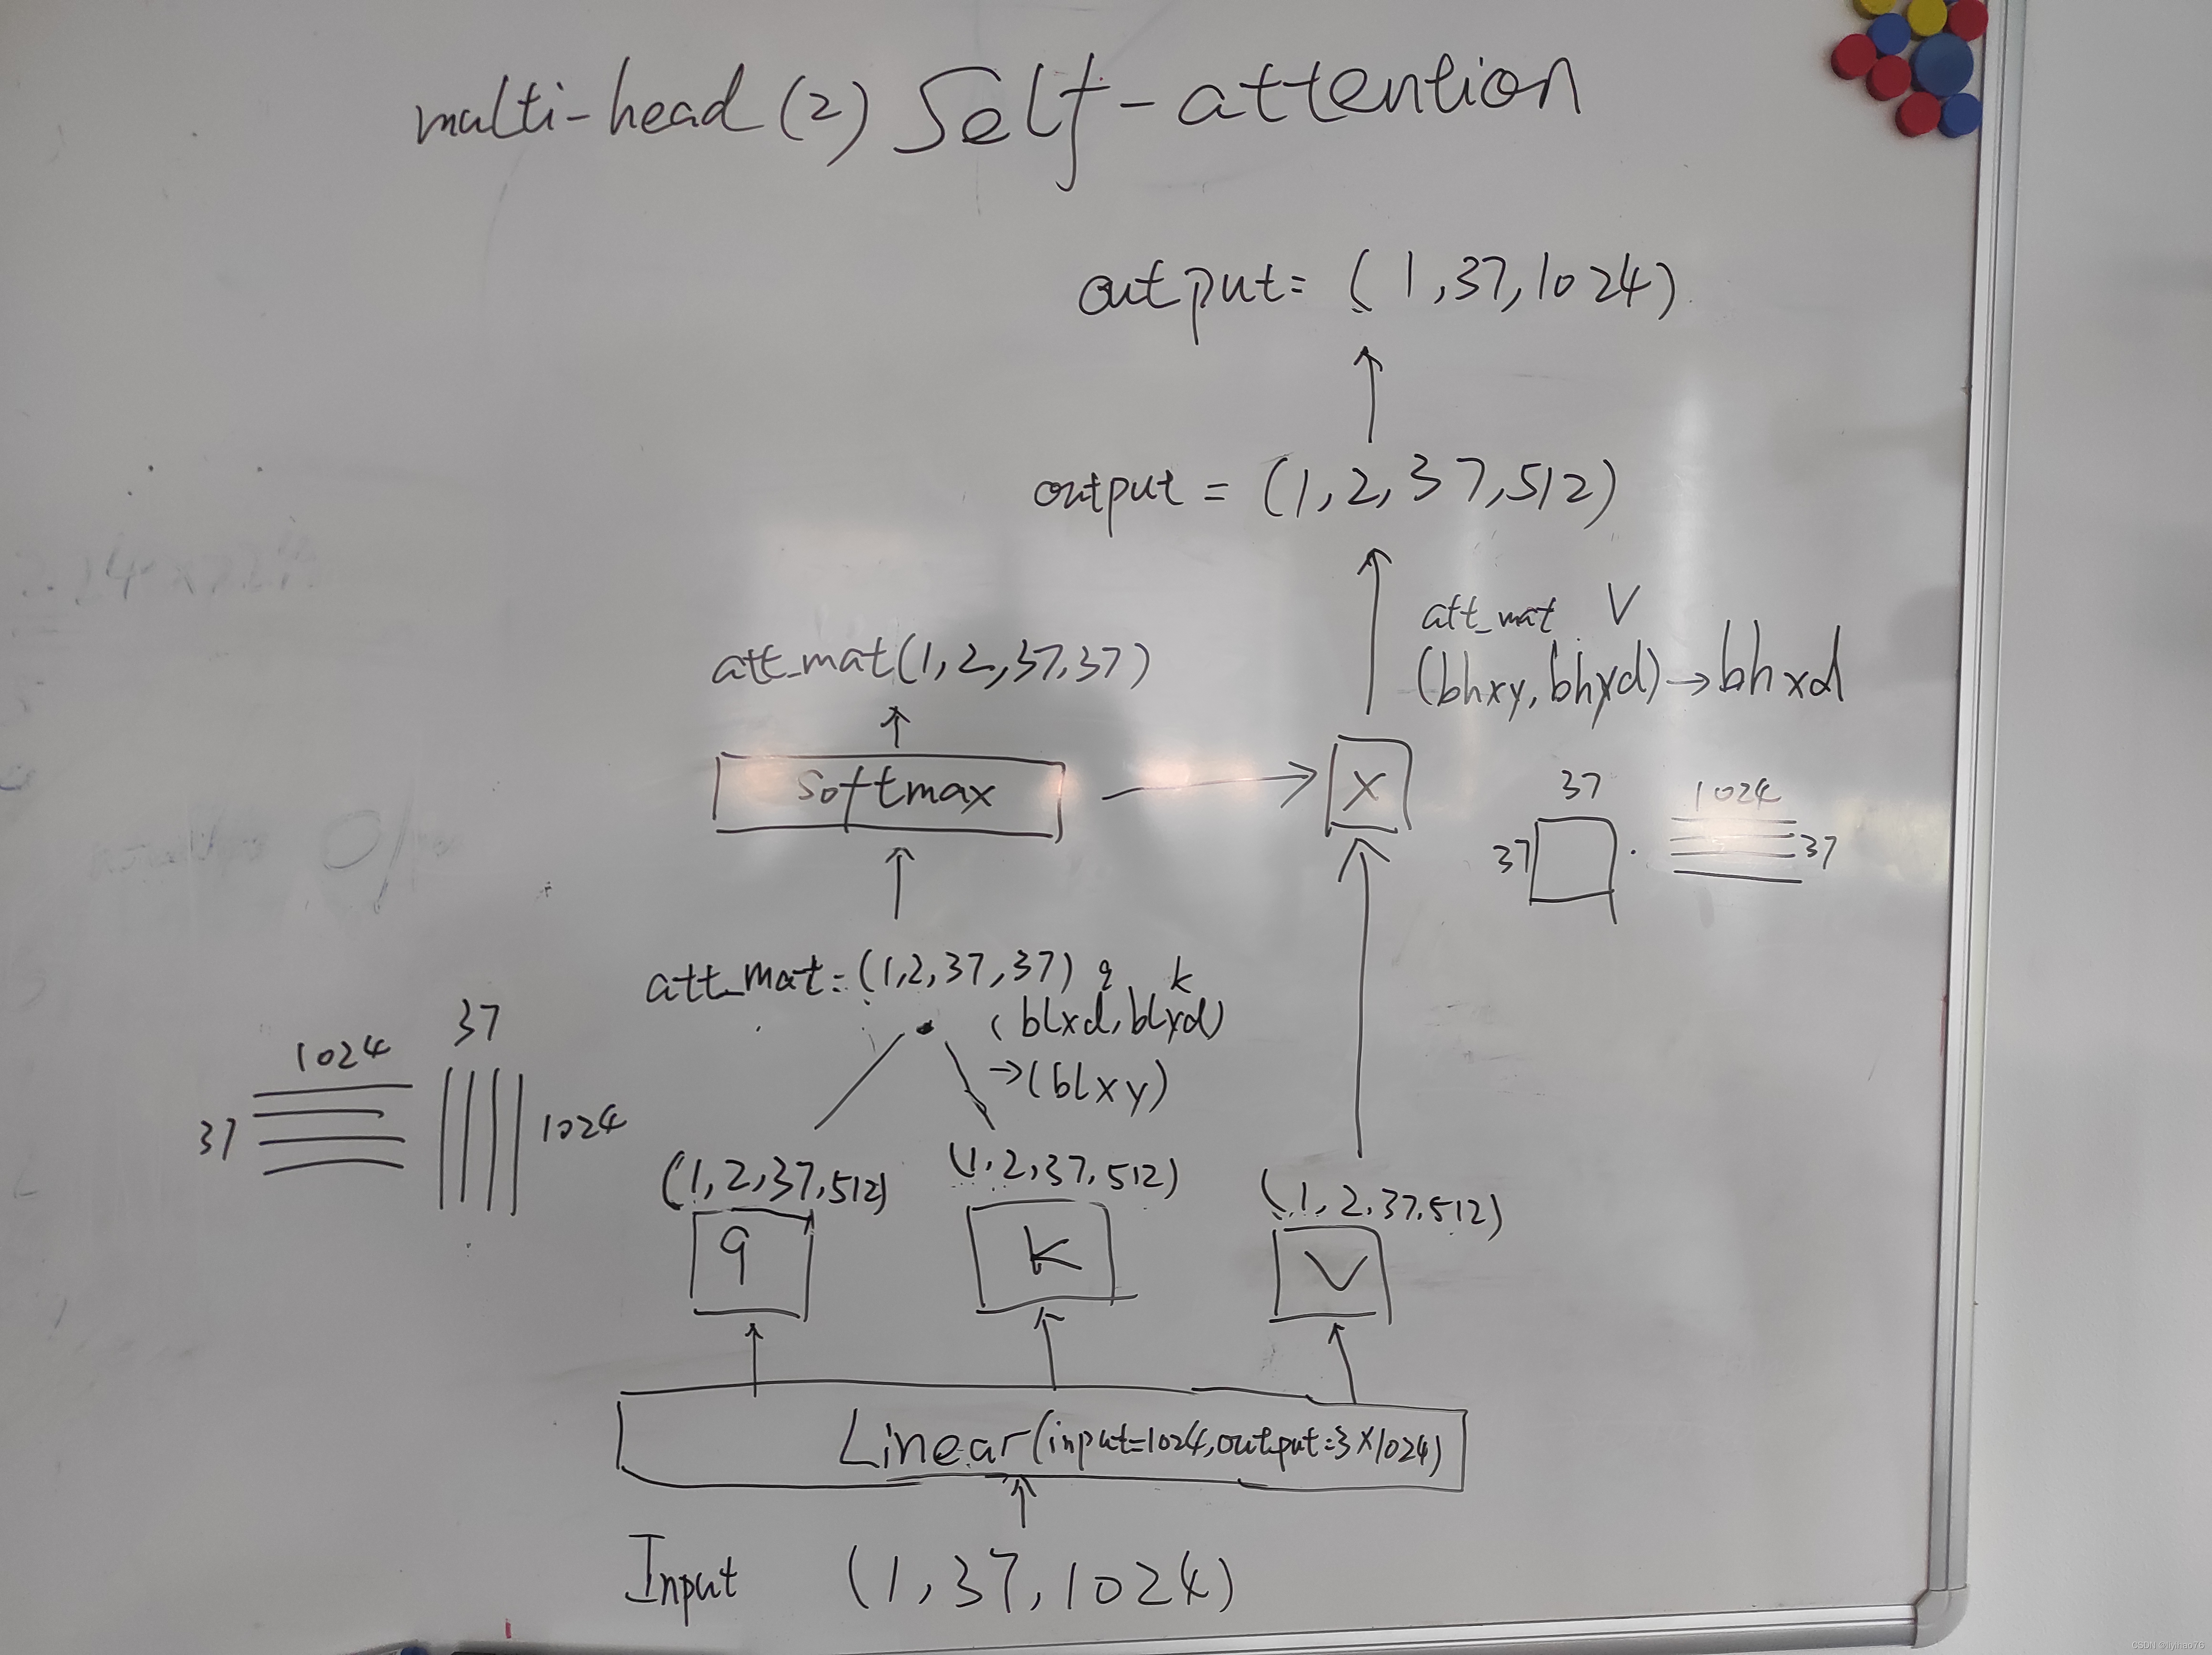 multi-head (2) Self-attention
output = (1,37,1024)
output = (1,2,37,512)
att_mat V
(bhxy, bhyd) → bhxd
att_mat(1,2,37,37)
softmax
X
37
1024
37
37
att_mat = (1,2,37,37)
q k
(blxd, blyd)
→(blxy)
37
1024
37
1024
(1,2,37,512)
(1,2,37,512)
(1,2,37,512)
q
k
V
Linear(input=1024,output=3X1024)
Input (1,37,1024)